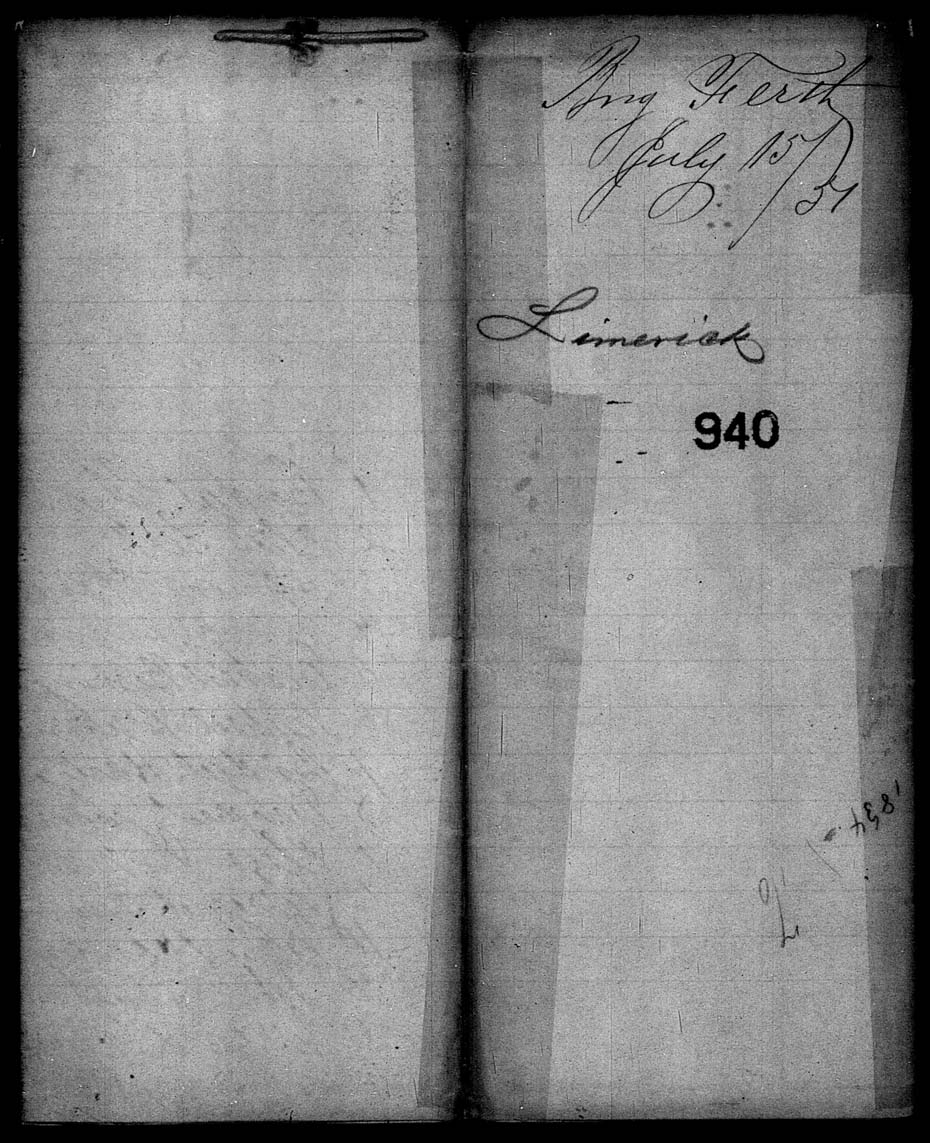 Bng Ferth
July 15/51
Limerick
940
1834